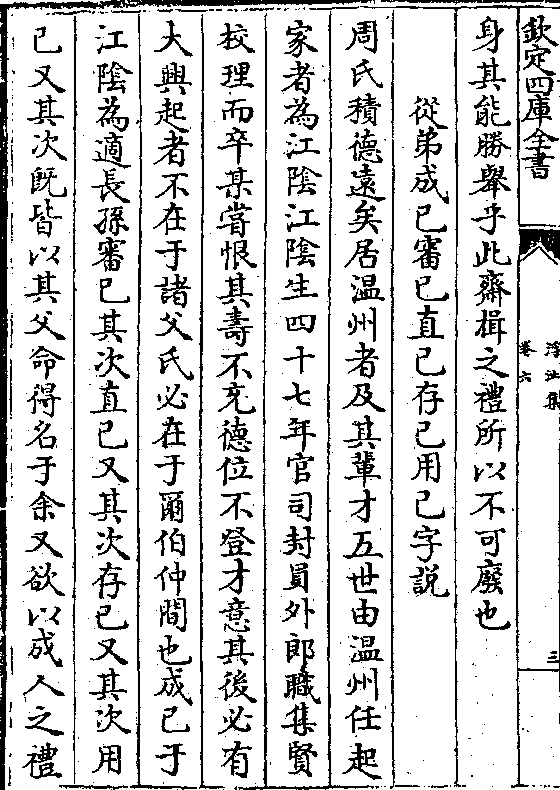 欽定四庫全書
浮沚集
卷六
三
身其能勝舉乎此齋揖之禮所以不可廢也
從弟成已審已直已存已用已字說
周氏積德遠矣居温州者及其輩才五世由温州任起
家者為江陰江陰生四十七年官司封員外郎職集賢
校理而卒某嘗恨其壽不充德位不登才意其後必有
大興起者不在于諸父氏必在于爾伯仲間也成已于
江陰為適長孫審已其次直已又其次存已又其次用
已又其次旣皆以其父命得名于余又欲以成人之禮